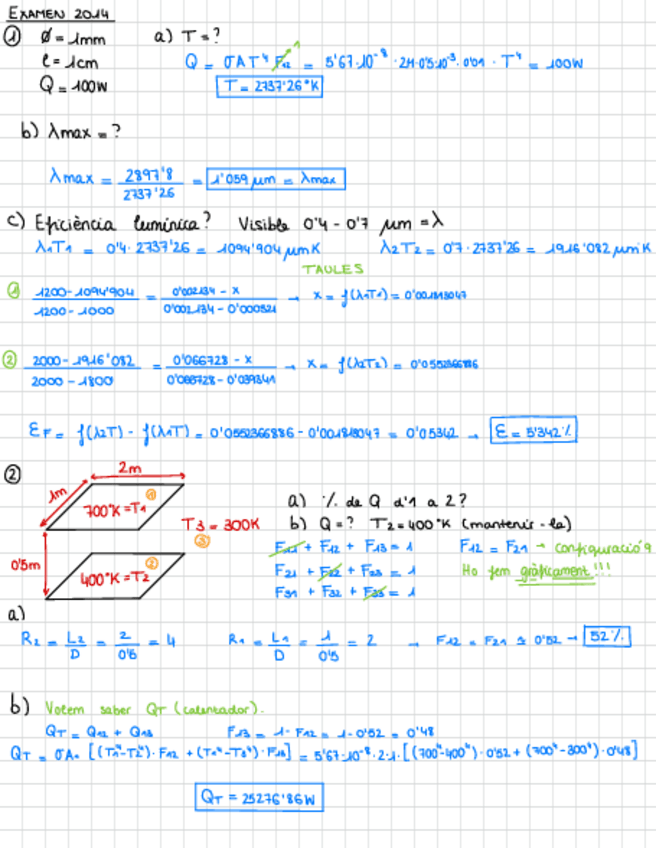 EXAMEN 2014
① Ø = 1mm a) T = ?
l = 1cm Q = σAT⁴ F₁₂ 1 = 5'67·10⁻⁸ · 2π·0'5·10⁻³ · 0'01 · T⁴ = 100W
Q = 100W T = 2737'26°K
b) λmax = ?
λmax = 2897'8 / 2737'26 = 1'059 μm = λmax
c) Eficiència lumínica? Visible 0'4 - 0'7 μm = λ
λ₁T₁ = 0'4 · 2737'26 = 1094'904 μmK λ₂T₂ = 0'7 · 2737'26 = 1916'082 μmK
TAULES
① 1200-1094'904 / 1200-1000 = 0'002134 - x / 0'002134 - 0'000321 → x = f(λ₁T₁) = 0'001813047
② 2000-1916'082 / 2000-1800 = 0'066728 - x / 0'066728 - 0'039341 → x = f(λ₂T₂) = 0'0552366886
EF = f(λ₂T) - f(λ₁T) = 0'0552366886 - 0'001813047 = 0'05342 → E = 5'342%
② 2m
1m
700°K = T₁ ①
T3 = 300K ③
0'5m
400°K = T₂ ②
a) % de Q d'1 a 2?
b) Q = ? T₂ = 400°K (mantenir-la)
F₁₁ + F₁₂ + F₁₃ = 1 F₁₂ = F₂₁ → configuració 9
F₂₁ + F₂₂ + F₂₃ = 1 Ho fem gràficament!!!
F₃₁ + F₃₂ + F₃₃ = 1
a)
R₂ = L₂ / D = 2 / 0'5 = 4 R₁ = L₁ / D = 1 / 0'5 = 2 → F₁₂ = F₂₁ ≅ 0'52 → 52%
b) Volem saber QT (calentador).
QT = Q₁₂ + Q₁₃ F₁₃ = 1 - F₁₂ = 1 - 0'52 = 0'48
QT = σA₁ [(T₁⁴-T₂⁴)·F₁₂ + (T₁⁴-T₃⁴)·F₁₃] = 5'67·10⁻⁸·2·1·[(700⁴-400⁴)·0'52 + (700⁴-300⁴)·0'48]
QT = 25276'86W